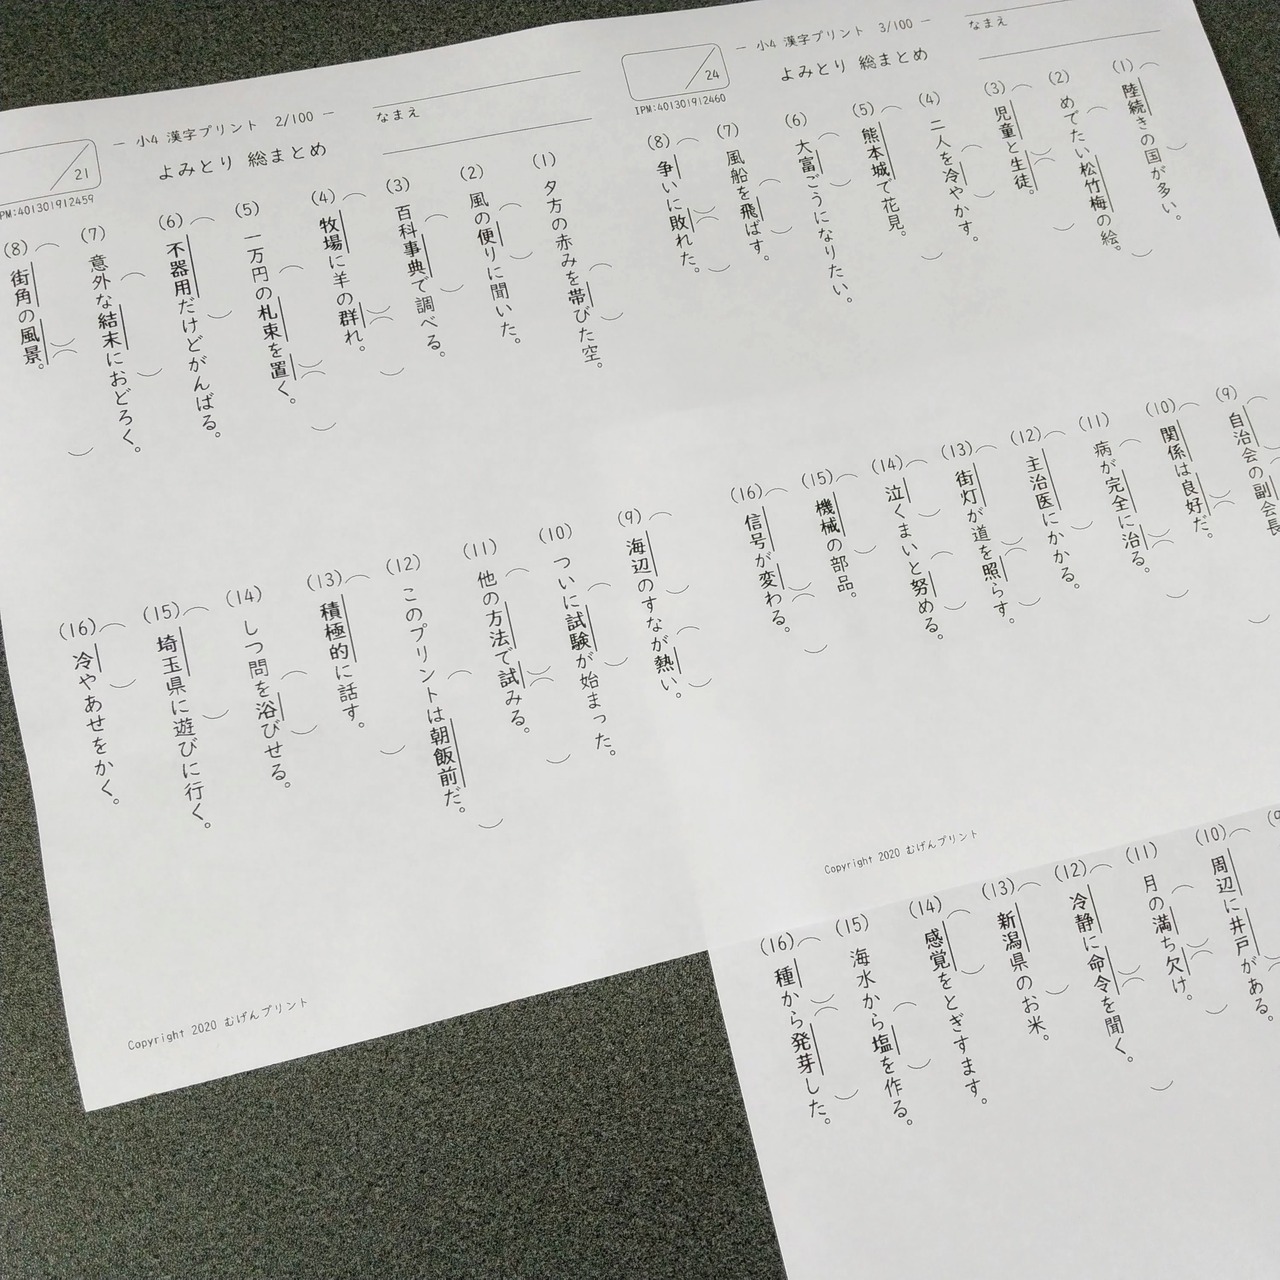 ― 小4 漢字プリント 2/100 ―
なまえ
よみとり 総まとめ
21
IPM:401301912459
(1) 夕方の赤みを帯びた空。
(2) 風の便りに聞いた。
(3) 百科事典で調べる。
(4) 牧場に羊の群れ。
(5) 一万円の札束を置く。
(6) 不器用だけどがんばる。
(7) 意外な結末におどろく。
(8) 街角の風景。
(9) 海辺のすなが熱い。
(10) ついに試験が始まった。
(11) 他の方法で試みる。
(12) このプリントは朝飯前だ。
(13) 積極的に話す。
(14) しつ問を浴びせる。
(15) 埼玉県に遊びに行く。
(16) 冷やあせをかく。
Copyright 2020 むげんプリント
― 小4 漢字プリント 3/100 ―
なまえ
よみとり 総まとめ
24
IPM:401301912460
(1) 陸続きの国が多い。
(2) めでたい松竹梅の絵。
(3) 児童と生徒。
(4) 二人を冷やかす。
(5) 熊本城で花見。
(6) 大富ごうになりたい。
(7) 風船を飛ばす。
(8) 争いに敗れた。
(9) 自治会の副会長
(10) 関係は良好だ。
(11) 病が完全に治る。
(12) 主治医にかかる。
(13) 街灯が道を照らす。
(14) 泣くまいと努める。
(15) 機械の部品。
(16) 信号が変わる。
Copyright 2020 むげんプリント
(10) 周辺に井戸がある。
(11) 月の満ち欠け。
(12) 冷静に命令を聞く。
(13) 新潟県のお米。
(14) 感覚をとぎすます。
(15) 海水から塩を作る。
(16) 種から発芽した。